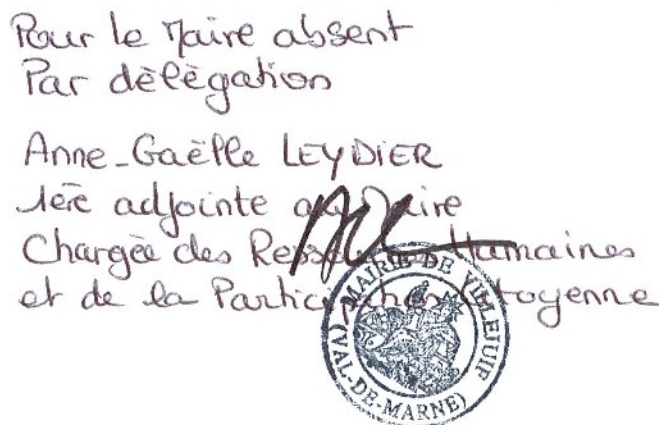 Pour le Maire absent
Par délégation
Anne-Gaëlle LEYDIER
1ère adjointe au Maire
Chargée des Ressources Humaines
et de la Participation Citoyenne
MAIRIE DE VILLEJUIF
(VAL-DE-MARNE)